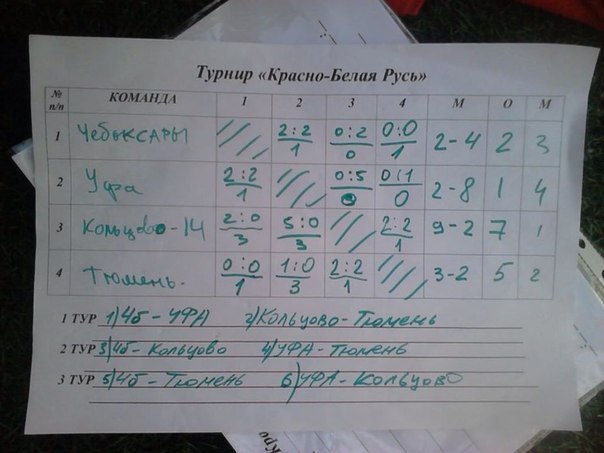 Турнир «Красно-Белая Русь»
№ п/п КОМАНДА 1 2 3 4 М О М
1 Чебоксары 2:2 1 0:2 0 0:0 1 2-4 2 3
2 Уфа 2:2 1 0:5 0 0:1 0 2-8 1 4
3 Кольцово-14 2:0 3 5:0 3 2:2 1 9-2 7 1
4 Тюмень. 0:0 1 1:0 3 2:2 1 3-2 5 2
1 ТУР 1) Чб - УФА 2) Кольцово - Тюмень
2 ТУР 3) Чб - Кольцово 4) УФА - Тюмень
3 ТУР 5) Чб - Тюмень 6) УФА - Кольцово